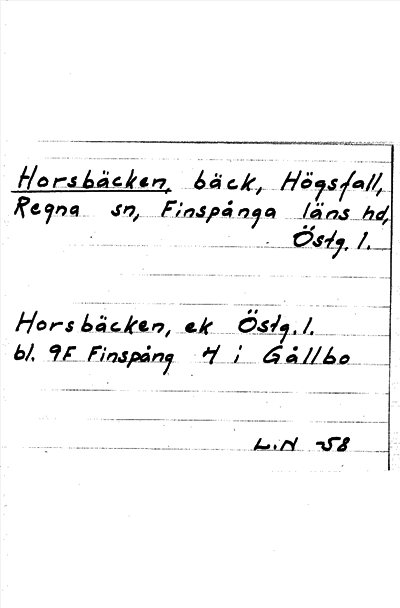 Horsbäcken, bäck, Högsfall,
Regna sn, Finspånga läns hd,
Östg. l.
Horsbäcken, ek Östg. l.
bl. 9F Finspång 7 i Gållbo
L.N -58